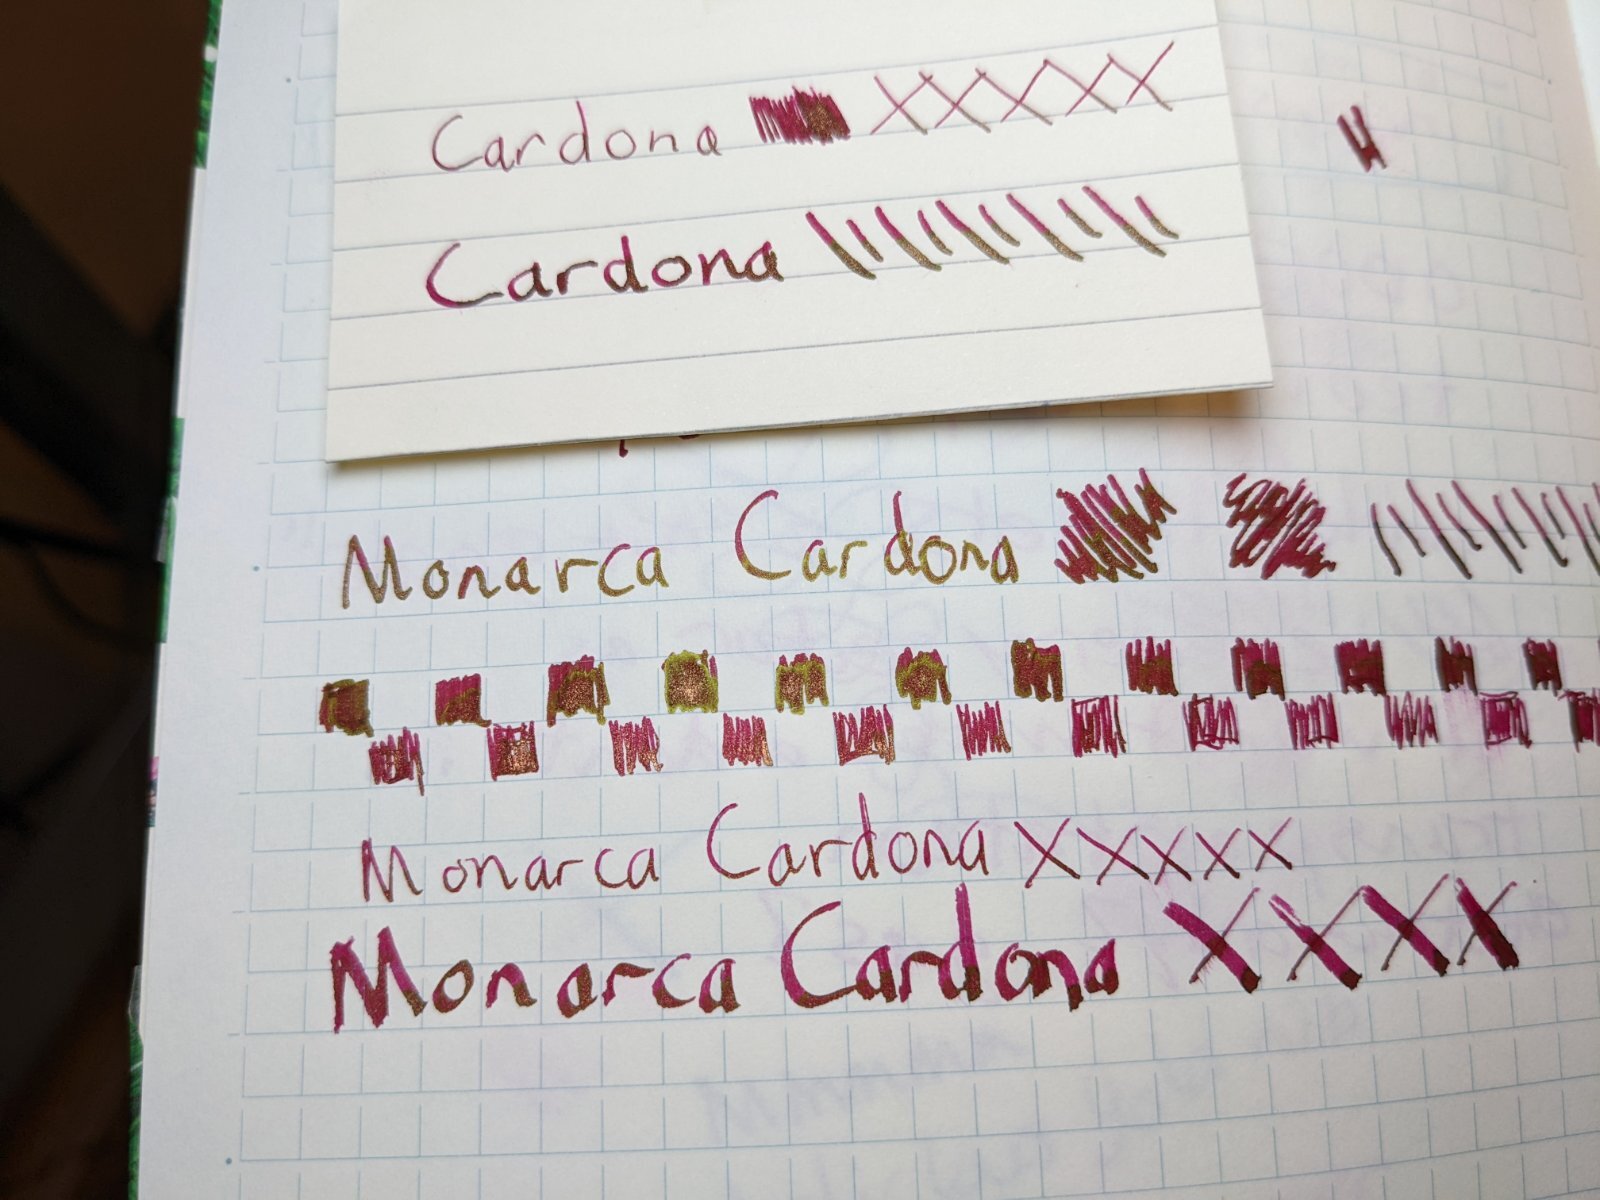 Cardona XXXXX
Cardona
Monarca Cardona
Monarca Cardona XXXXX
Monarca Cardona XXXX